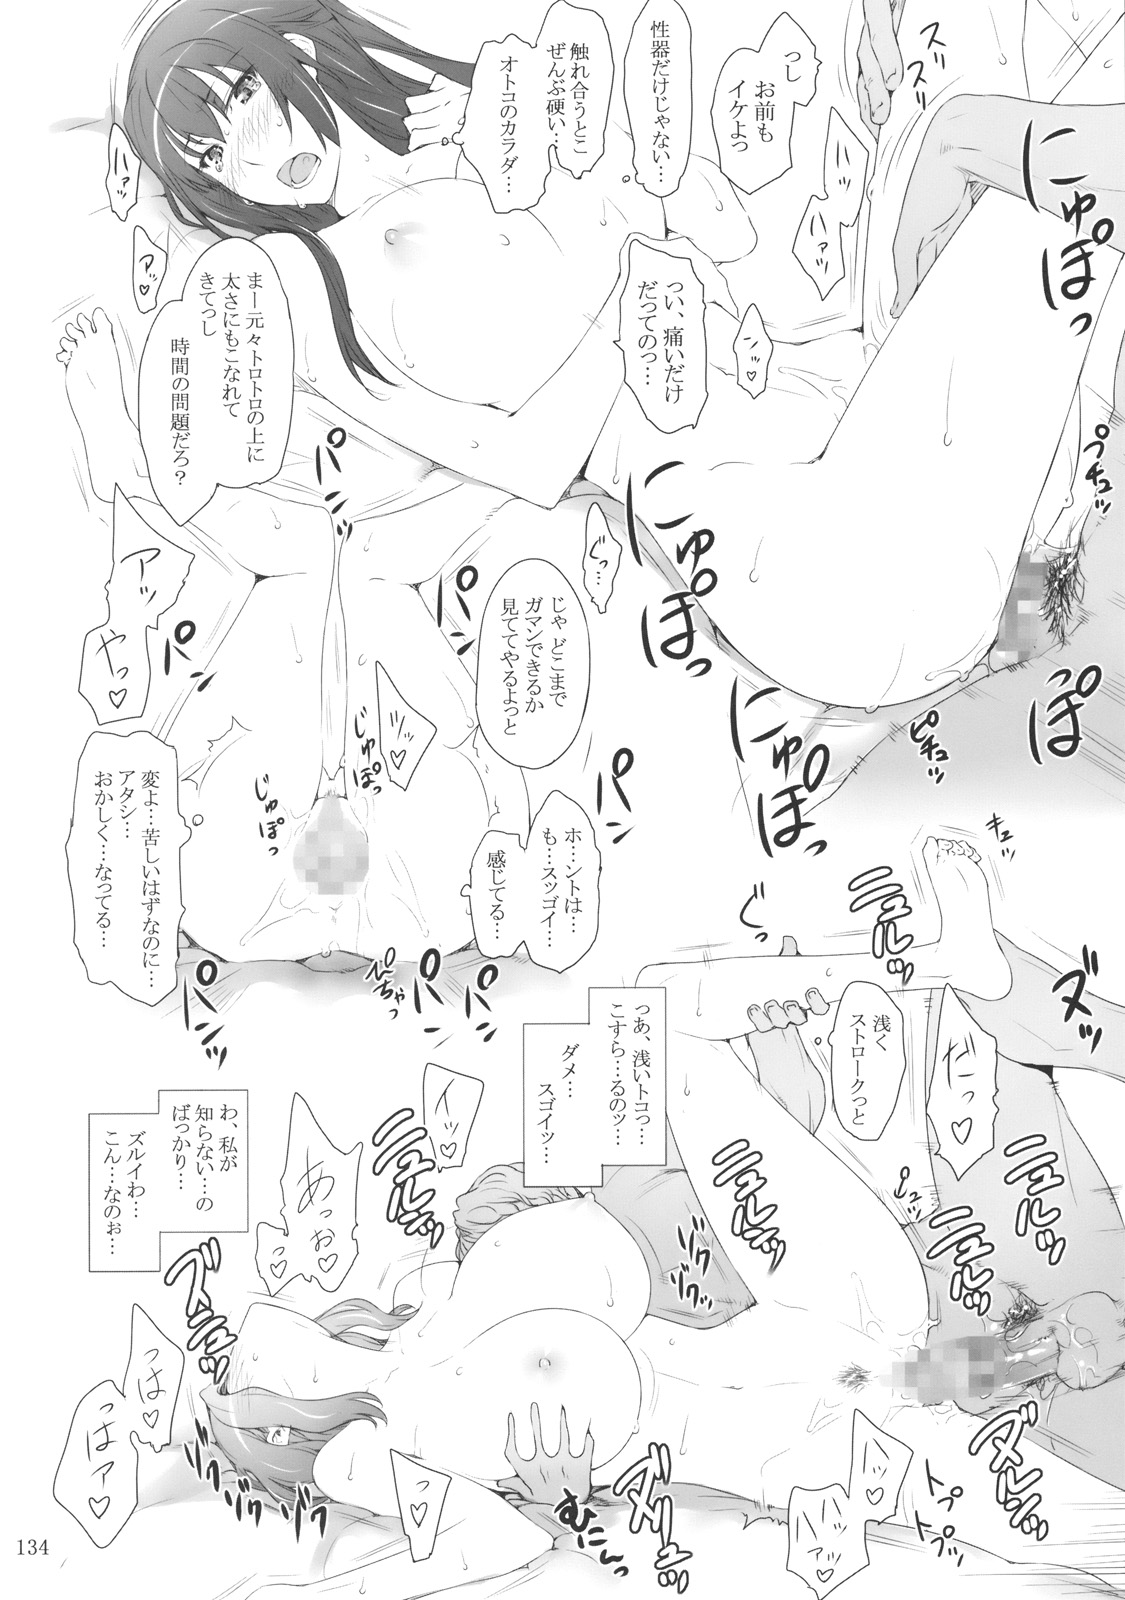 っし
お前も
イケよっ
性器だけじゃない…
触れ合うとこ
ぜんぶ硬い…
オトコのカラダ…
スッ
スッ
ハァッ
ハァッ
アッ♡
にゅぽっ
つい、痛いだけ
だってのっ…
ンッ♡
まー元々トロトロの上に
太さにもこなれて
きてっし
時間の問題だろ？
プチュッ
にゅぽっ
パンッ
アッ
やっ♡
ぐっ…
じゃ どこまで
ガマンできるか
見ててやるよっと
パン
パン
にゅぽっ
っぽ
ピチュッ
ツッ♡
じゅぽっ
じゅぽっ
パン
ホ…ントは…
も…スッゴイ…
感じてる…
変よ…苦しいはずなのに…
アタシ…
おかしく…なってる…
パンッ
パン
パン
ぴちゃっ
キュッ
ぐっ
ニュルッ
ヌッ
浅く
ストロークっと
だっ♡
っあ、浅いトコっ…
こすら…るのッ…
ダメ…
スゴイッ…
わ、私が
知らない…の
ばっかり…
ズルイわ…
こん…なのぉ…
イッ♡
あっぉ♡
ニュルッ
ニュルッ
ニュルッ
ニュルッ
ゾクッ
ゾクッ
ズニュッ
っは♡
っはァ♡
ゾクッ
ゾクッ
っ♡
むにんっ
トプ
トプッ
134